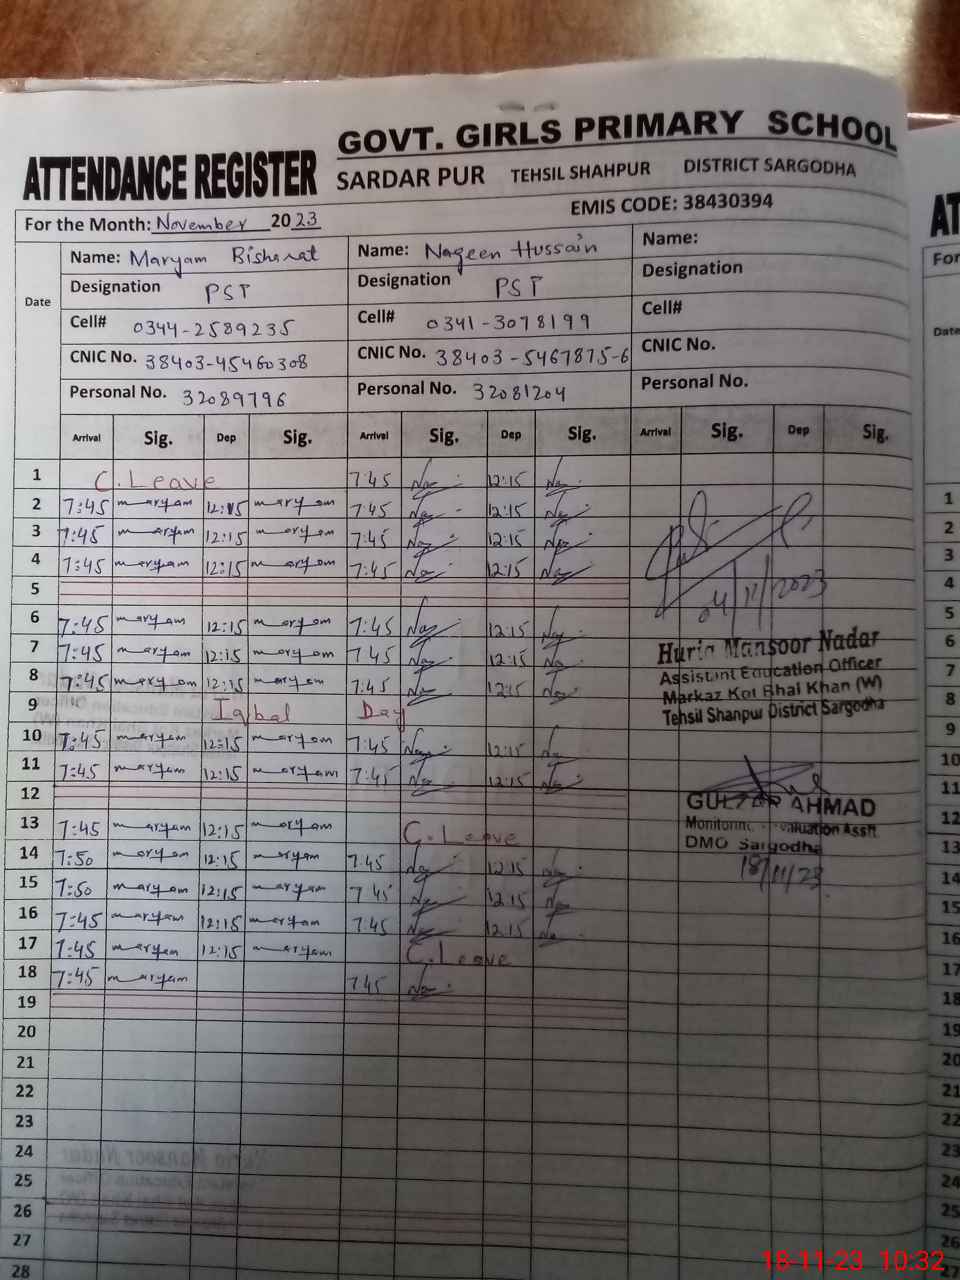 GOVT. GIRLS PRIMARY SCHOOL
ATTENDANCE REGISTER SARDAR PUR TEHSIL SHAHPUR DISTRICT SARGODHA
For the Month: November 2023 EMIS CODE: 38430394
Date Name: Maryam Bisharat Name: Nageen Hussain Name:
Designation PST Designation PST Designation
Cell# 0344-2589235 Cell# 0341-3078199 Cell#
CNIC No. 38403-45460308 CNIC No. 38403-5467875-6 CNIC No.
Personal No. 32089796 Personal No. 32081204 Personal No.
Arrival Sig. Dep Sig. Arrival Sig. Dep Sig. Arrival Sig. Dep Sig.
1 C. Leave 7:45 12:15
2 7:45 maryam 12:15 maryam 7:45 12:15
3 7:45 maryam 12:15 maryam 7:45 12:15
4 7:45 maryam 12:15 maryam 7:45 12:15
04/11/2023
5
6 7:45 maryam 12:15 maryam 7:45 12:15
7 7:45 maryam 12:15 maryam 7:45 12:15
8 7:45 maryam 12:15 maryam 7:45 12:15
Huria Mansoor Nadar
Assistent Education Officer
Markaz Kot Bhai Khan (W)
Tehsil Shahpur District Sargodha
9 Iqbal Day
10 7:45 maryam 12:15 maryam 7:45 12:15
11 7:45 maryam 12:15 maryam 7:45 12:15
12
GULZAR AHMAD
Monitoring Evaluation Asstt.
DMO Sargodha
18/11/23
13 7:45 maryam 12:15 maryam C. Leave
14 7:50 maryam 12:15 maryam 7:45 12:15
15 7:50 maryam 12:15 maryam 7:45 12:15
16 7:45 maryam 12:15 maryam 7:45 12:15
17 7:45 maryam 12:15 maryam C. Leave
18 7:45 maryam 7:45
19
20
21
22
23
24
25
26
27
28
18-11-23 10:32